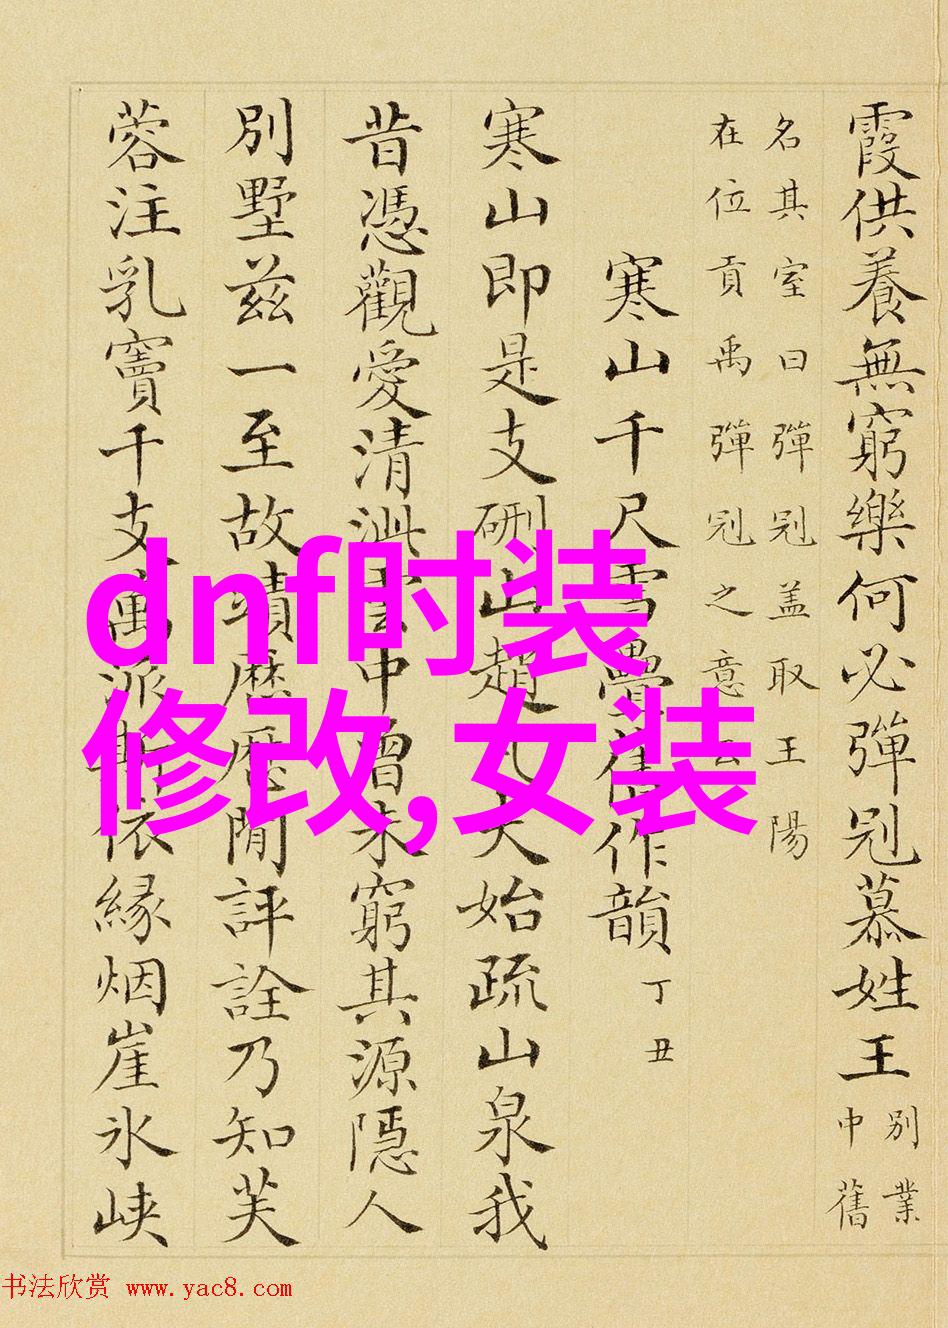 霞供養無窮樂何必彈冠慕姓王
別業
中舊
名其室曰彈冠盖取王陽
在位貢禹彈冠之意
寒山千尺雪疊舊作韻
丁丑
寒山即是支硎山趙氏大始疏山泉我
昔憑觀愛清泚雲中曾未窮其源隱人
別墅兹一至故蹟歴歴閒評詮乃知芙
蓉注乳竇千支萬派斯依緣烟崖氷峡
dnf时装
修改,女装
书法欣赏 www.yac8.com